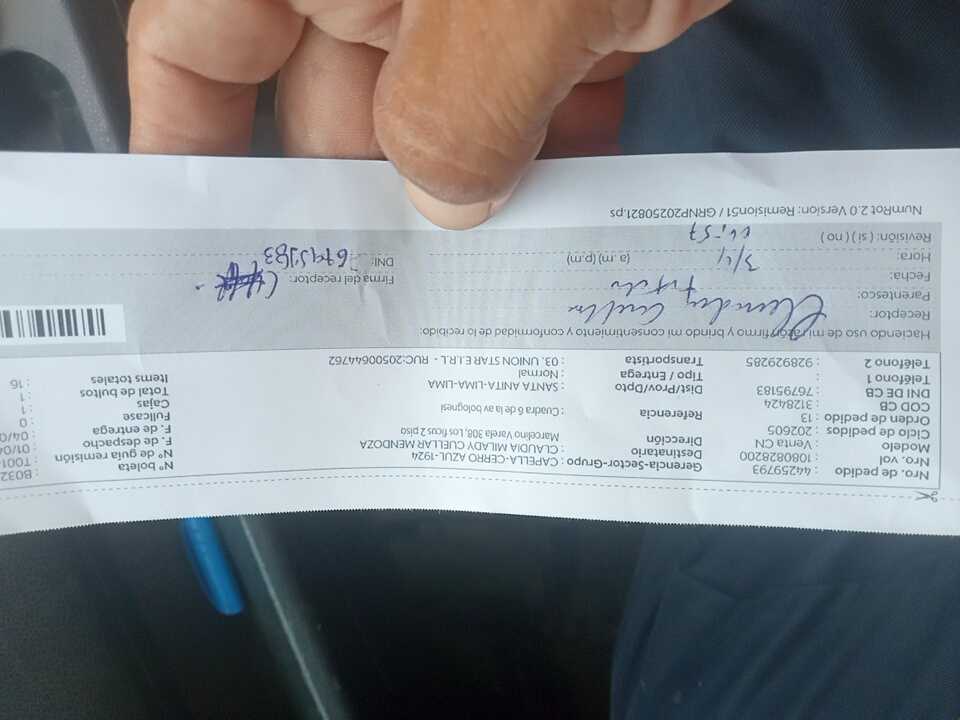 Nro. de pedido : 442597793
Nro. vol. : 1080828200
Modelo : Venta CN
Ciclo de pedidos : 202605
Orden de pedido : 13
COD CB : 3128424
DNI DE CB : 76795183
Teléfono 1 :
Teléfono 2 : 928929285
Gerencia-Sector-Grupo : CAPELLA-CERRO AZUL-1924
Destinatario : CLAUDIA MILADY CUELLAR MENDOZA
Dirección Marcelino Varela 308, Los Ficus 2 piso
Referencia : Cuadra 6 de la av bolognesi
Dist/Prov/Dpto : SANTA ANITA-LIMA-LIMA
Tipo / Entrega : Normal
Transportista : 03. UNION STAR E.I.R.L - RUC:20500644762
Nº boleta : B032
Nº de guía remisión : T001
F. de despacho : 01/04
F. de entrega : 04/04
Fullcase : 0
Cajas : 1
Total de bultos : 1
Items totales : 16
Haciendo uso de mi razón firmo y brindo mi consentimiento y conformidad de lo recibido:
Receptor:
Parentesco:
Fecha: 3/4/
Hora: (a.m) (p.m)
Revisión: ( si ) ( no )
Firma del receptor:
DNI:
NumRot 2.0 Version: Remision51 / GRNP20250821.ps